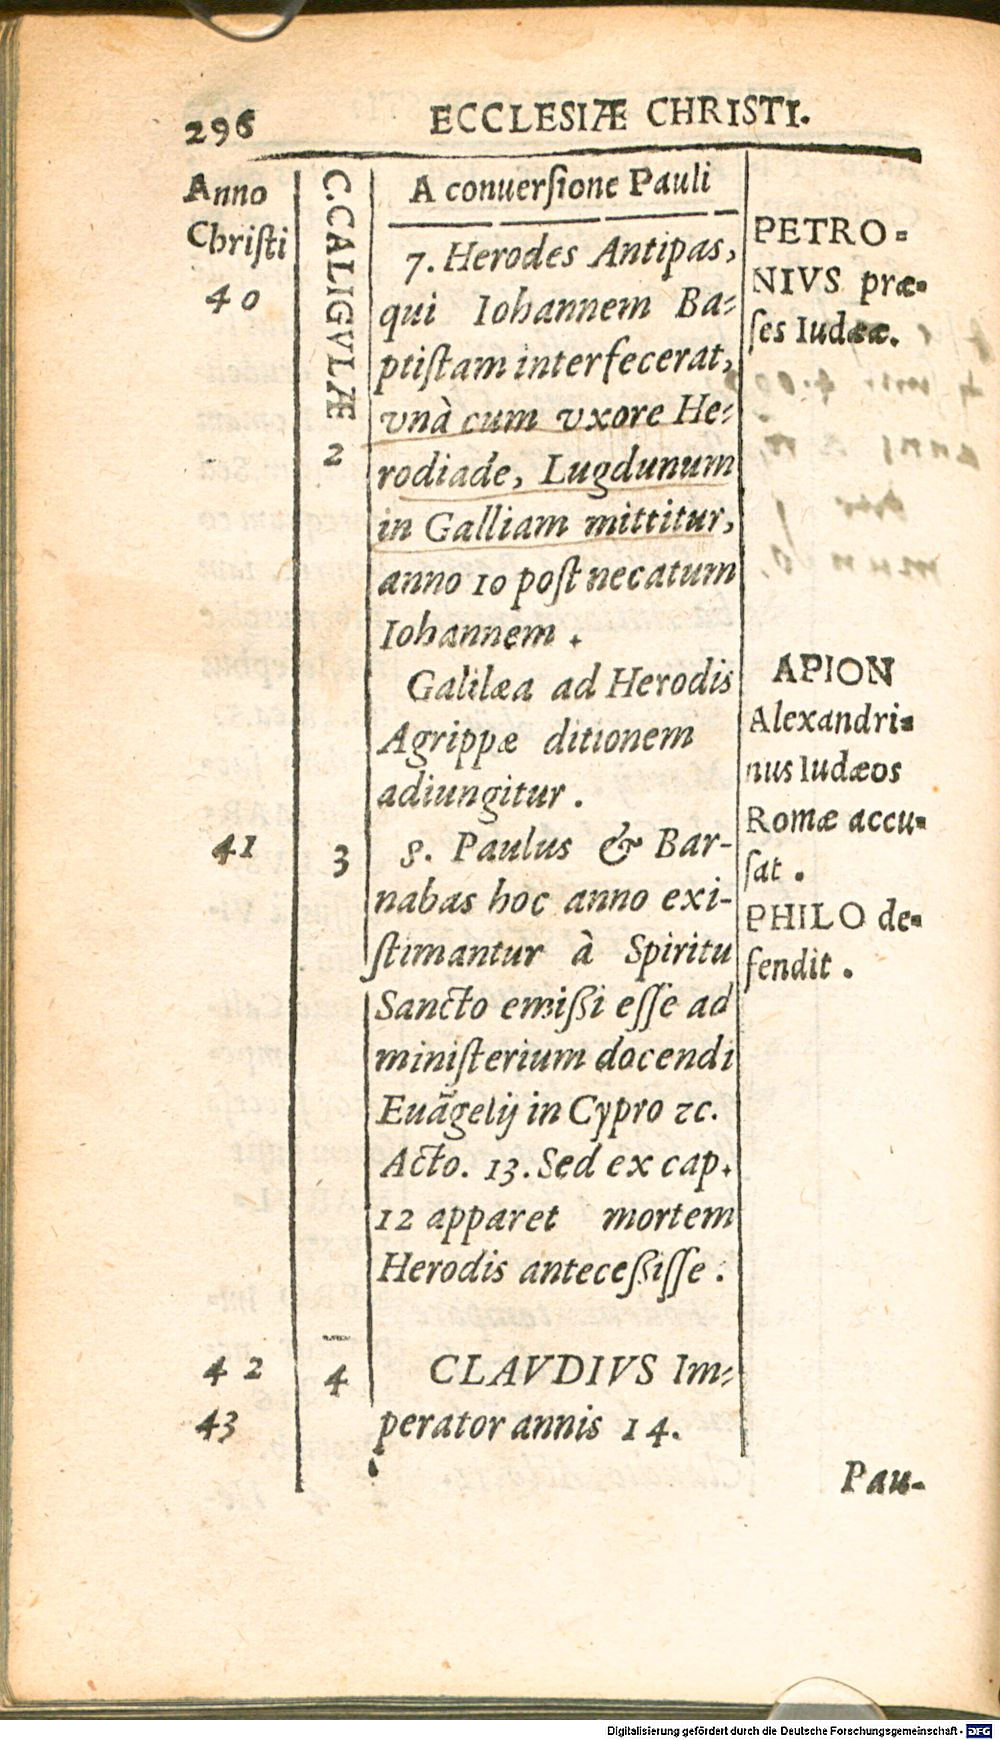 296
ECCLESIÆ CHRISTI.
Anno
Chriſti
40
C. CALIGVLÆ
2
A conuerſione Pauli
7. Herodes Antipas,
qui Iohannem Ba-
ptiſtam interfecerat,
vnà cum vxore He-
rodiade, Lugdunum
in Galliam mittitur,
anno 10 poſt necatum
Iohannem.
Galilæa ad Herodis
Agrippæ ditionem
adiungitur.
PETRO-
NIVS præ-
ſes Iudææ.
APION
Alexandri-
nus Iudæos
Romæ accu-
ſat.
PHILO de-
fendit.
41
3
8. Paulus & Bar-
nabas hoc anno exi-
ſtimantur à Spiritu
Sancto emißi eſſe ad
miniſterium docendi
Euãgelij in Cypro ꝛc.
Acto. 13. Sed ex cap.
12 apparet mortem
Herodis anteceßiſſe.
42
4
CLAVDIVS Im-
43
perator annis 14.
Pau-
Digitalisierung gefördert durch die Deutsche Forschungsgemeinschaft - DFG